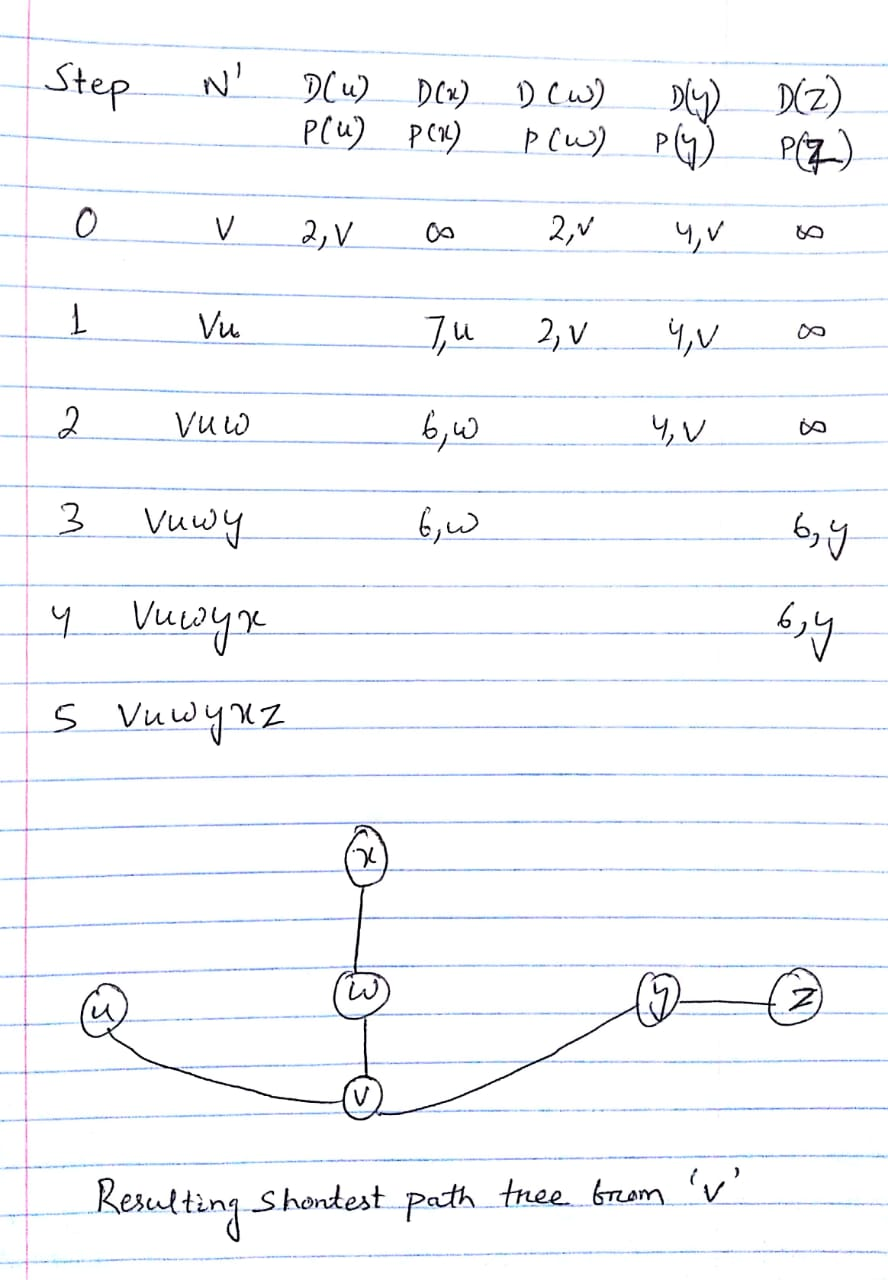 Step N' D(u) D(x) D(w) D(y) D(z)
P(u) P(x) P(w) P(y) P(z)
0 v 2,v ∞ 2,v 4,v ∞
1 vu 7,u 2,v 4,v ∞
2 vuw 6,w 4,v ∞
3 vuwy 6,w 6,y
4 vuwyx 6,y
5 vuwyxz
x
u w y z
v
Resulting shortest path tree from 'v'